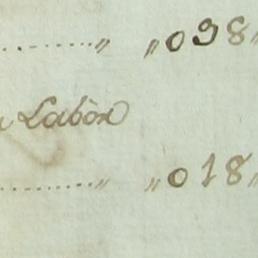 .........„ „038„
a Labòr
.........„ „018„